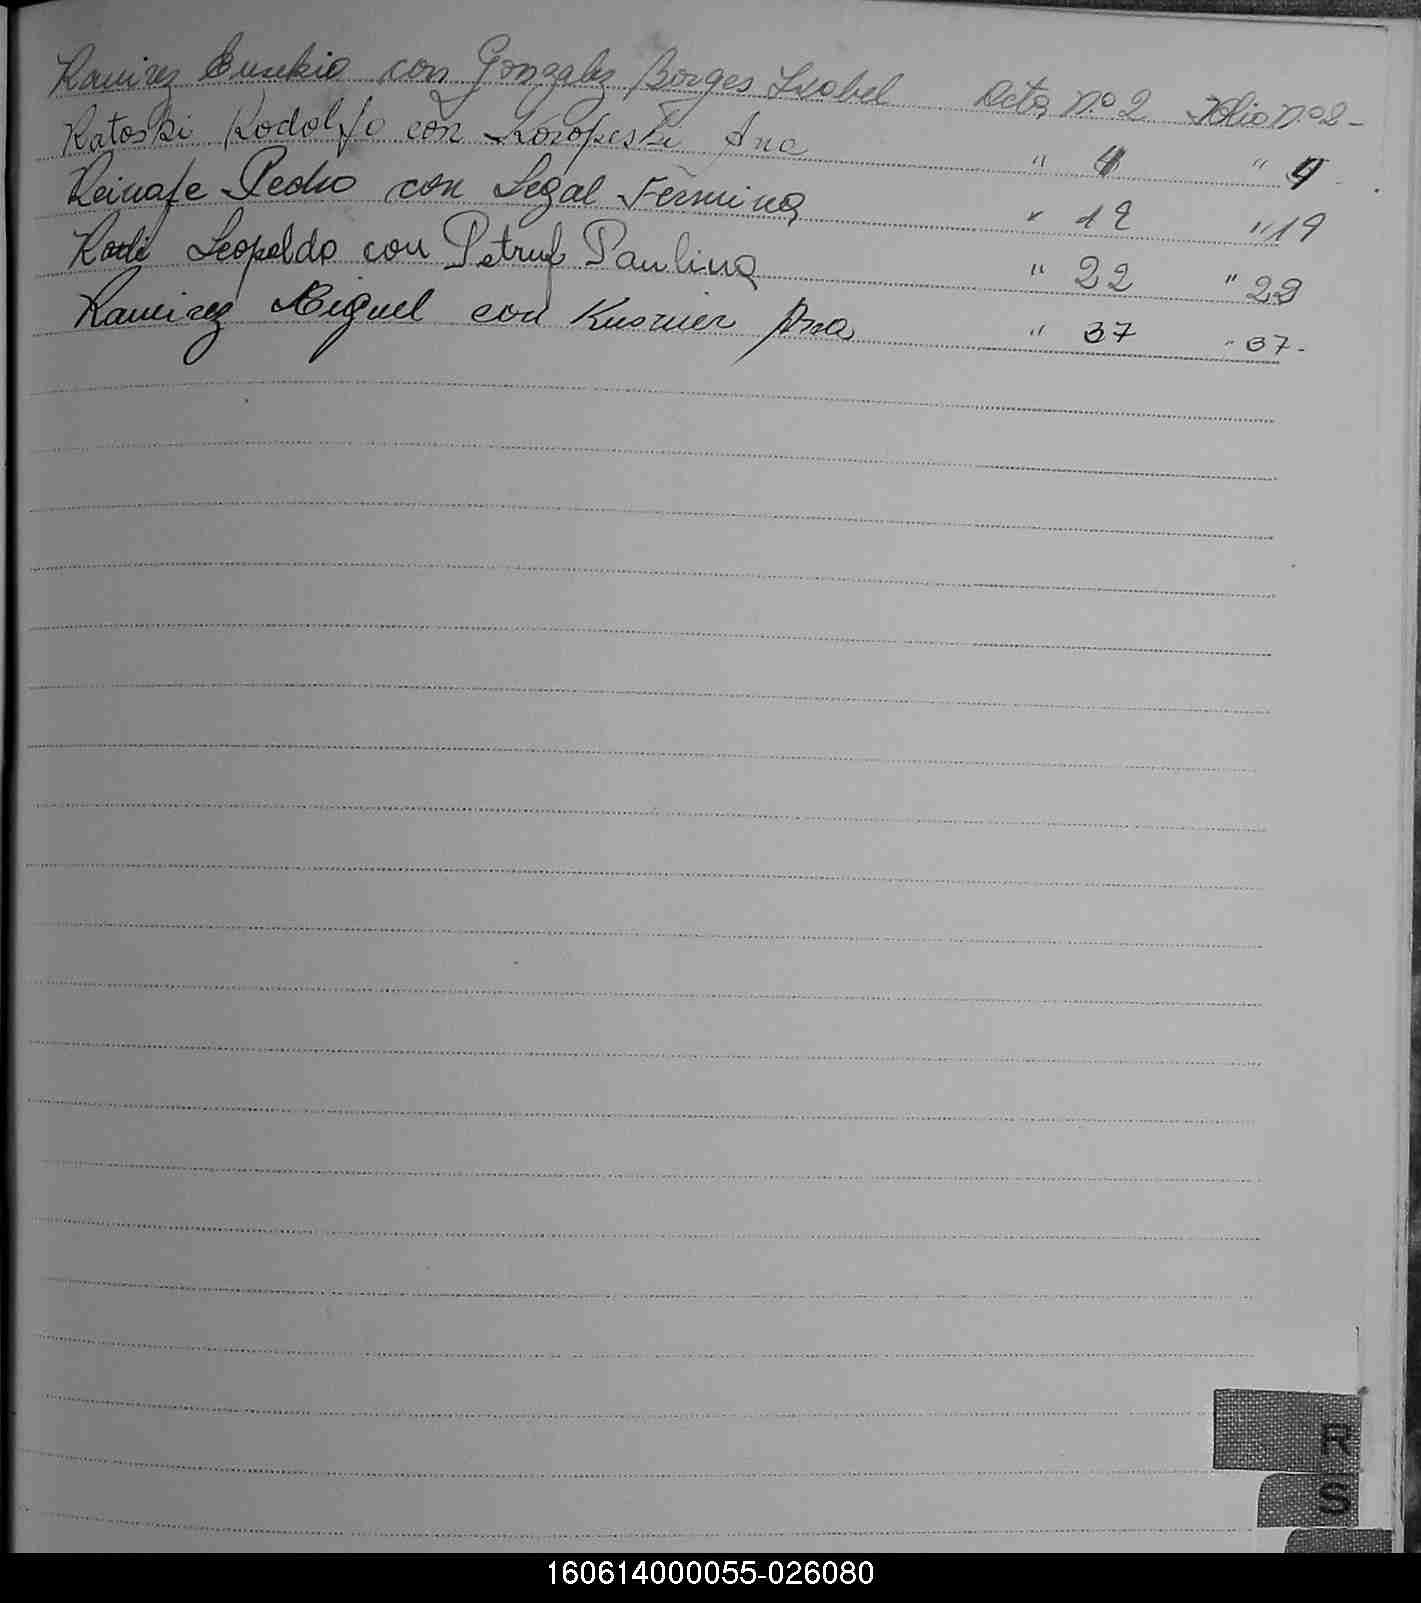 Ramirez Eusebio con Gonzalez Borges Isabel Acta nº 2 Folio nº 2-
Ratoski Rodolfo con Koropeski Ana " 4 " 4
Reinafe Pedro con Legal Fermina " 19 " 19
Leopoldo con Paulina " 22 " 22
Ramirez Miguel con Kusnier Ana " 37 " 37-
R
S
160614000055-026080